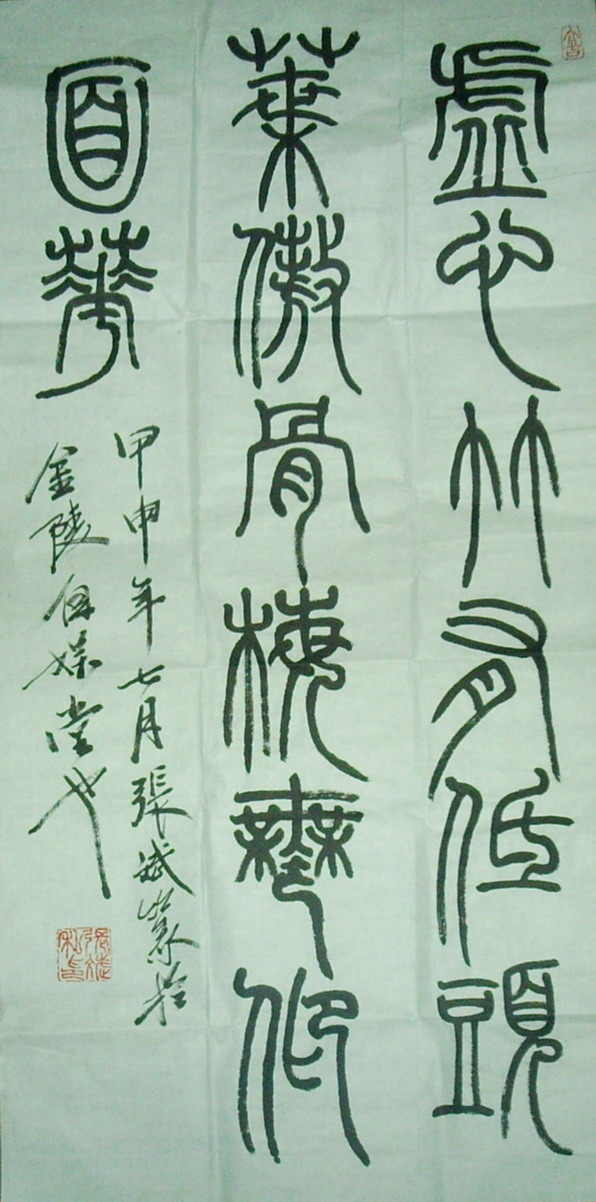 虛心竹有低頭
葉傲骨梅無仰
面花
甲申年七月張斌篆於
金陵
堂也